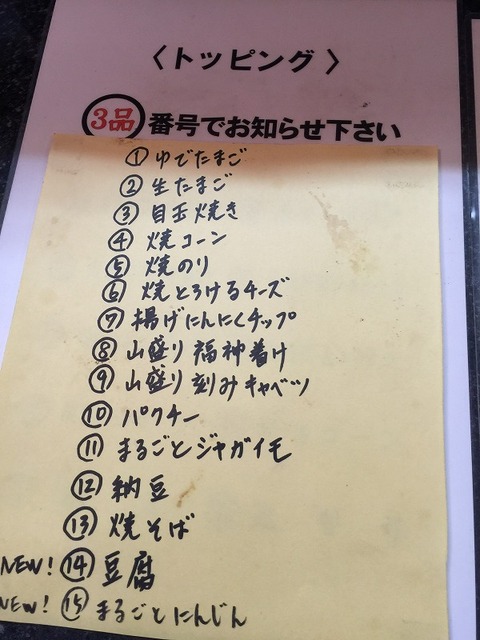 〈トッピング〉
3品 番号でお知らせ下さい
① ゆでたまご
② 生たまご
③ 目玉焼き
④ 焼コーン
⑤ 焼のり
⑥ 焼とろけるチーズ
⑦ 揚げにんにくチップ
⑧ 山盛り福神着け
⑨ 山盛り刻みキャベツ
⑩ パクチー
⑪ まるごとジャガイモ
⑫ 納豆
⑬ 焼そば
NEW! ⑭ 豆腐
NEW! ⑮ まるごとにんじん